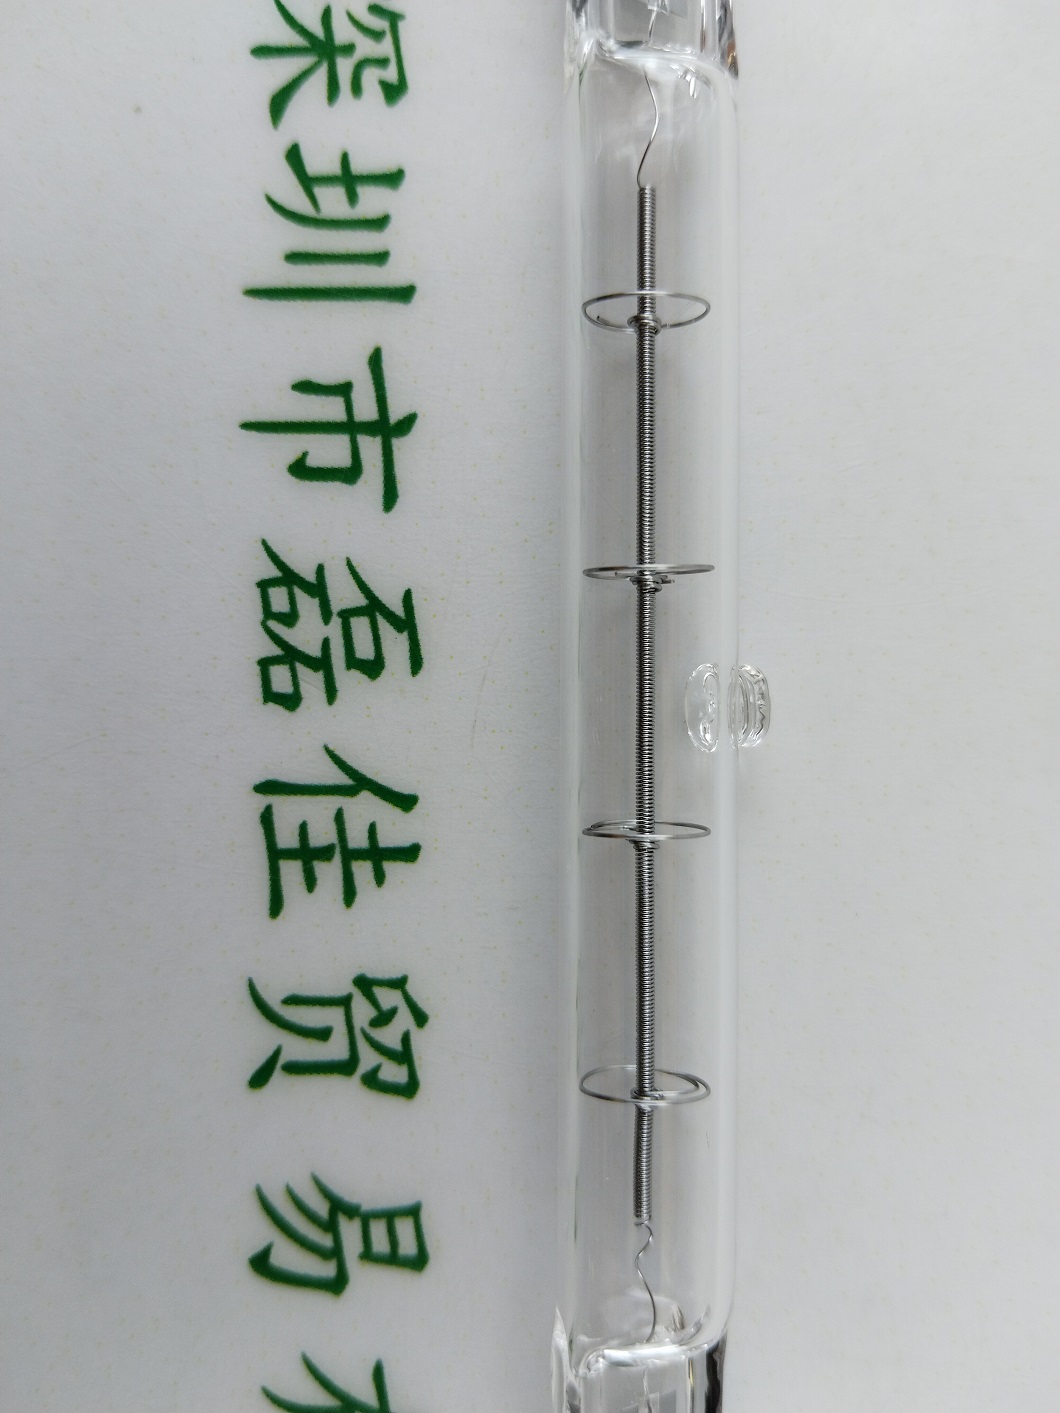 深圳市磊佳贸易有